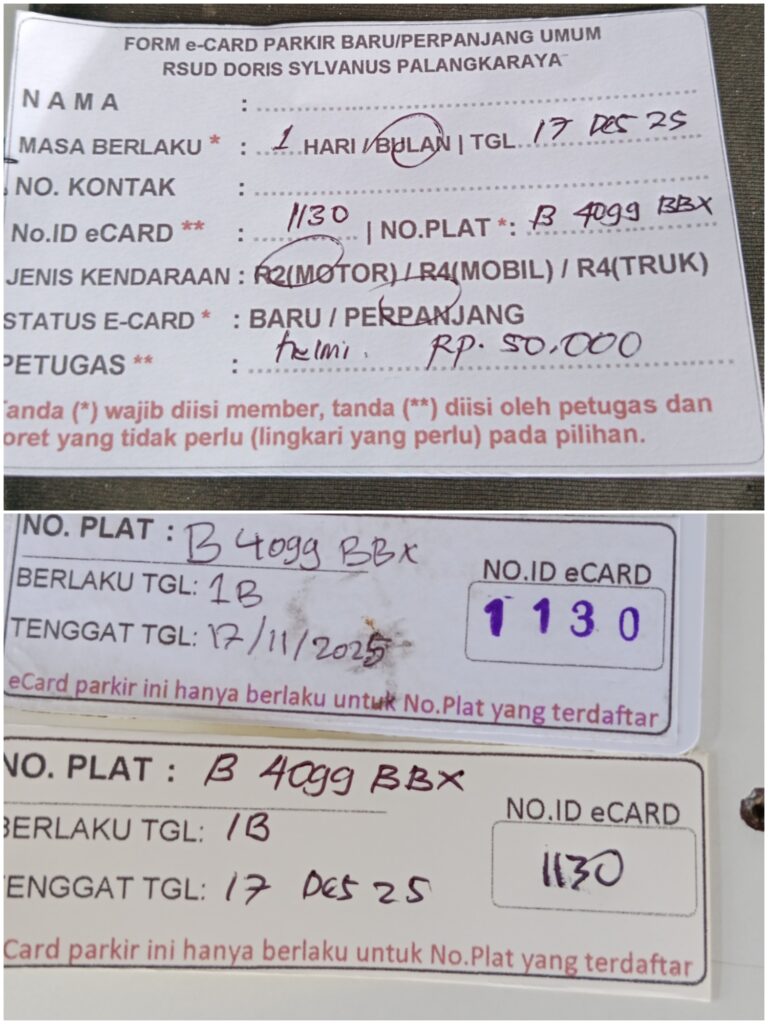 FORM e-CARD PARKIR BARU/PERPANJANG UMUM
RSUD DORIS SYLVANUS PALANGKARAYA
NAMA :
MASA BERLAKU * : 1 HARI / BULAN | TGL 17 DES 25
NO. KONTAK :
No.ID eCARD ** : 1130 | NO.PLAT *: B 4099 BBX
JENIS KENDARAAN : R2(MOTOR) / R4(MOBIL) / R4(TRUK)
STATUS E-CARD * : BARU / PERPANJANG
PETUGAS ** : helmi. RP. 50.000
anda (*) wajib diisi member, tanda (**) diisi oleh petugas dan
oret yang tidak perlu (lingkari yang perlu) pada pilihan.
NO. PLAT : B 4099 BBX
BERLAKU TGL: 1B
NO.ID eCARD
1130
TENGGAT TGL: 17/11/2025
eCard parkir ini hanya berlaku untuk No.Plat yang terdaftar
NO. PLAT : B 4099 BBX
BERLAKU TGL: 1B
NO.ID eCARD
1130
ENGGAT TGL: 17 DES 25
Card parkir ini hanya berlaku untuk No.Plat yang terdaftar